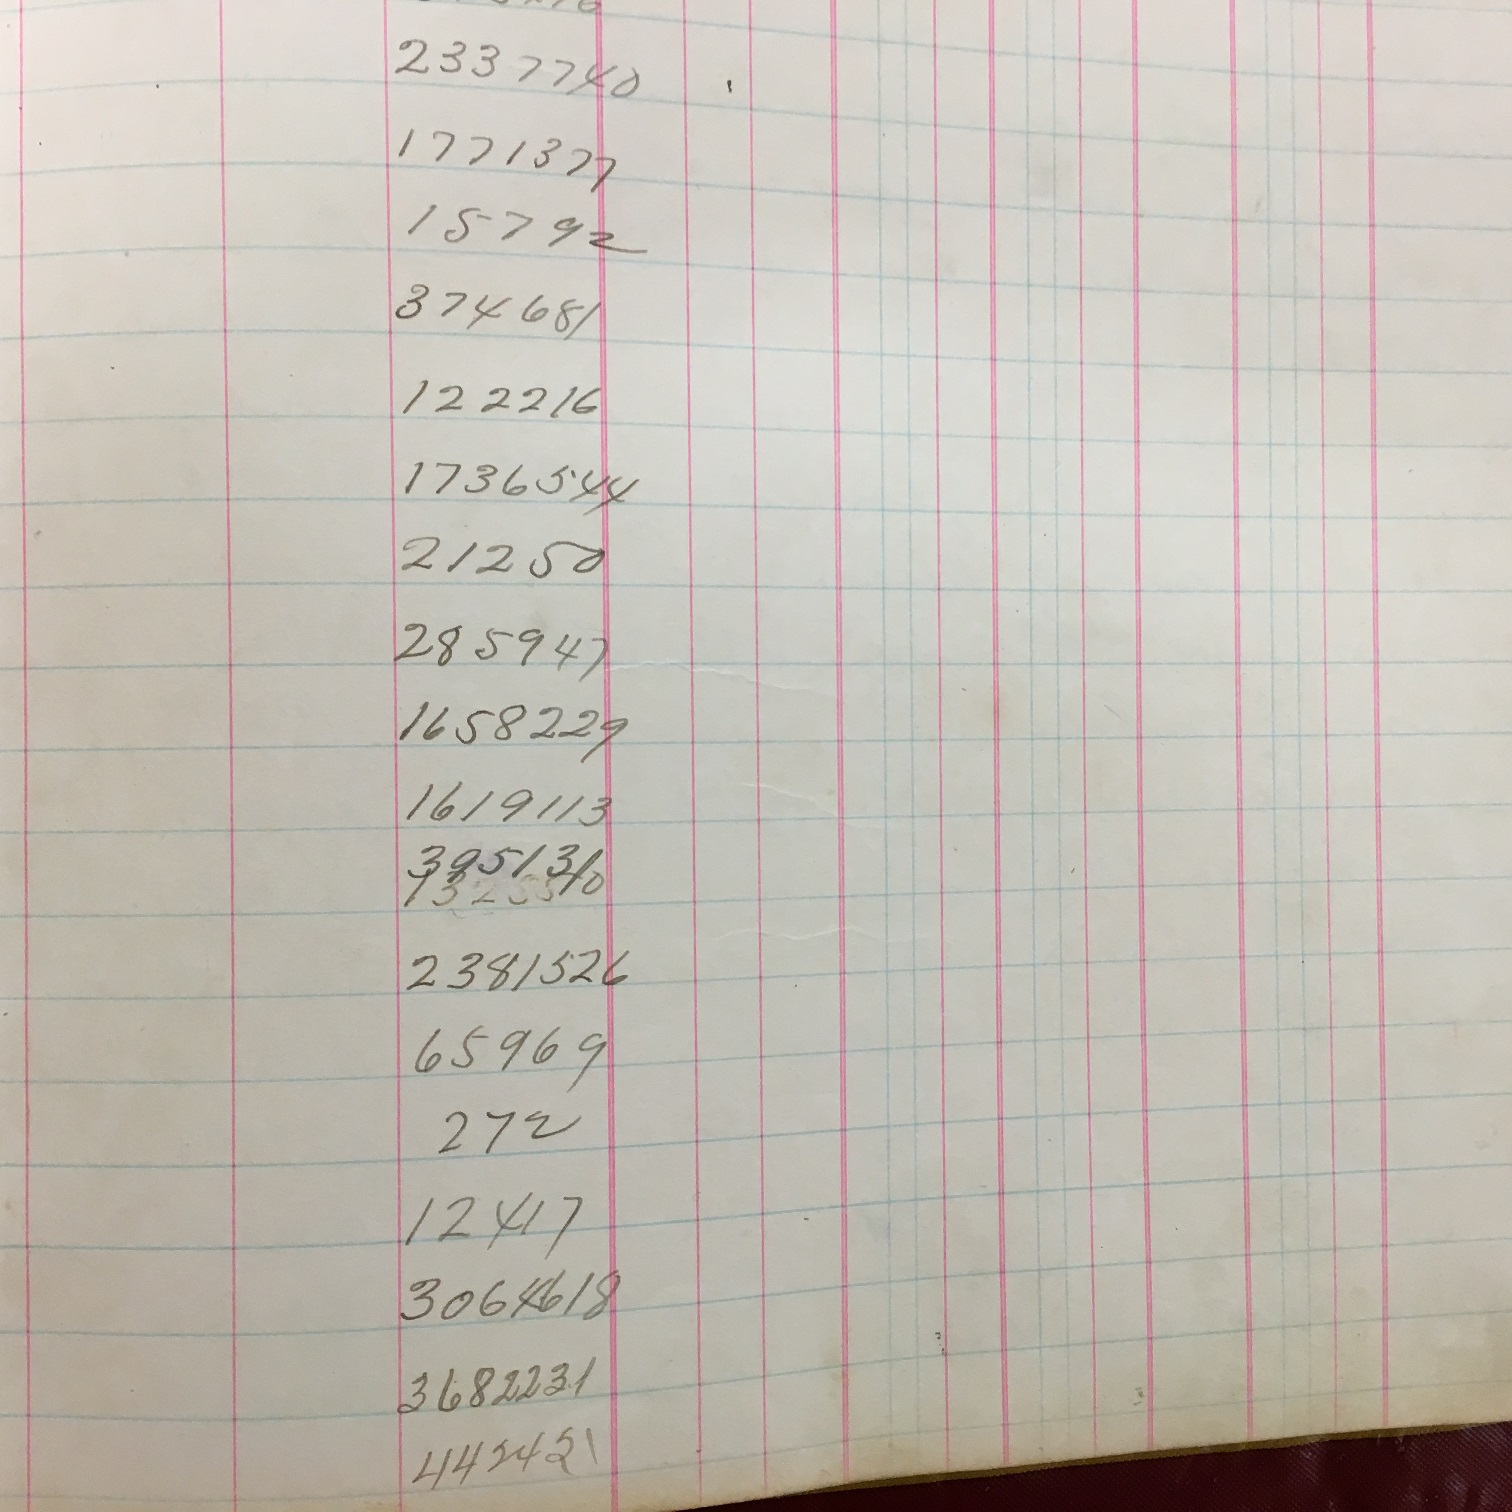 2337740
1771377
15792
374681
122216
1736544
21250
285947
1658229
1619113
395131
2381526
65969
272
12417
3064618
3682231
442421